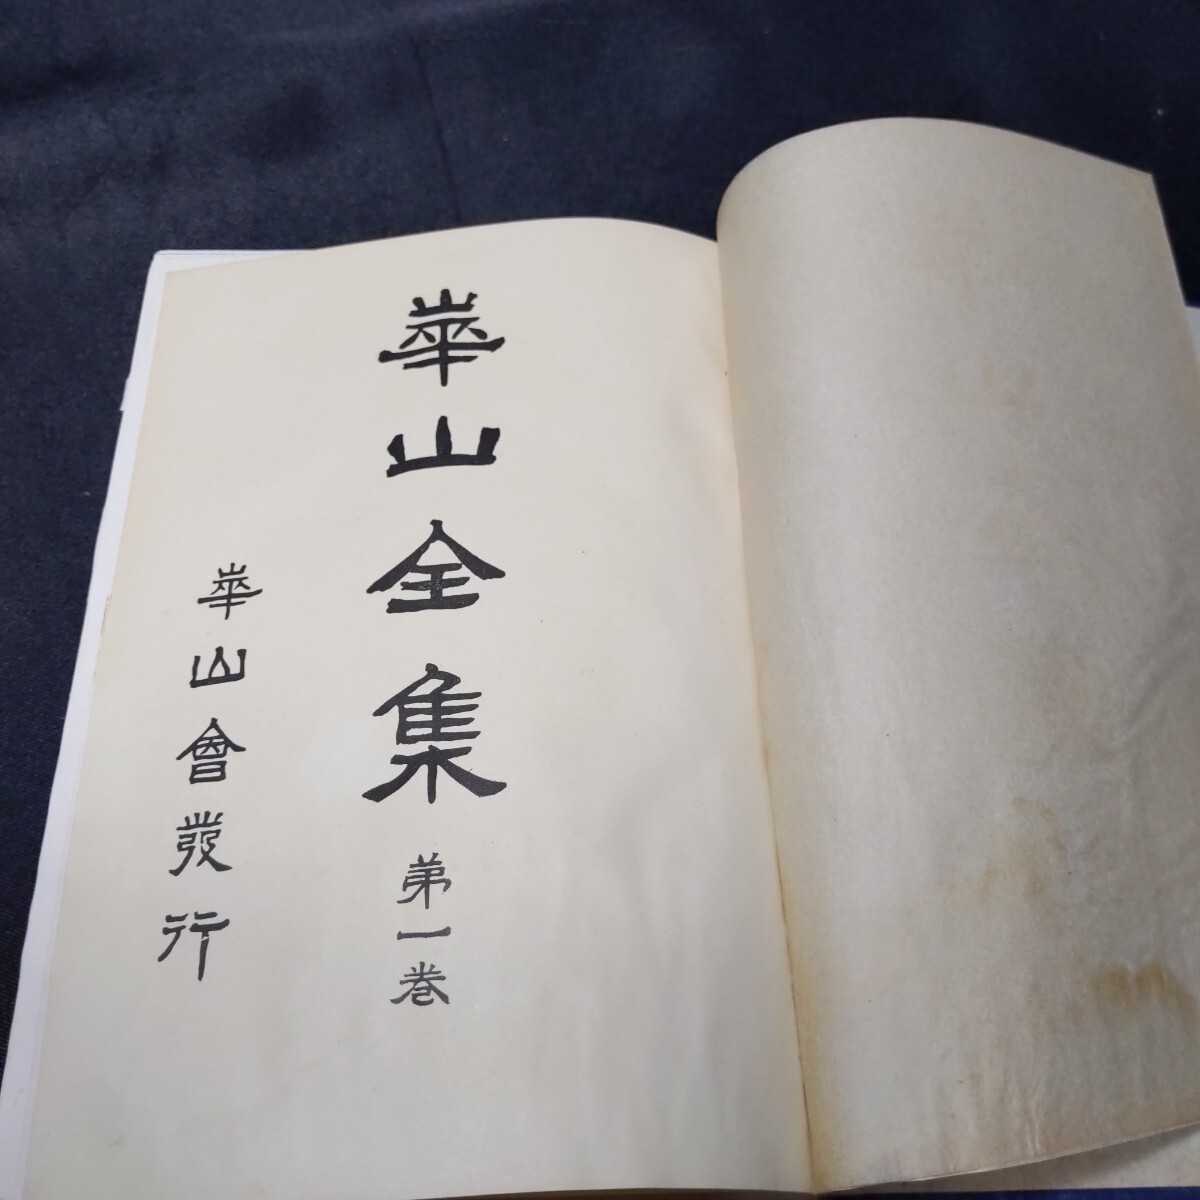 華山全集
第一巻
華山會發行